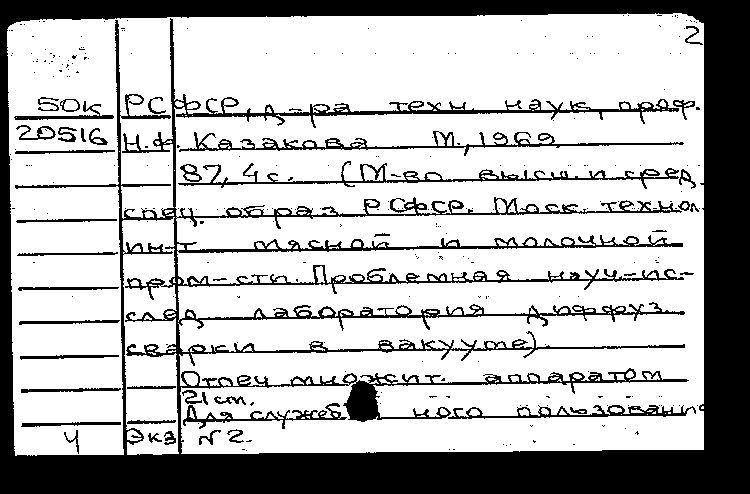 2
50к РСФСР, д-ра техн. наук, проф.
20516 Н.Ф. Казакова М., 1969.
87, 4 с. (М-во высш. и сред.
спец. образ РСФСР. Моск. технол.
ин-т мясной и молочной
пром-сти. Проблемная науч-ис-
след лаборатория диффуз.
сварки в вакууме).
Отпеч множит. аппаратом
21 cm.
Для служебного пользования
Ч Экз. N 2.